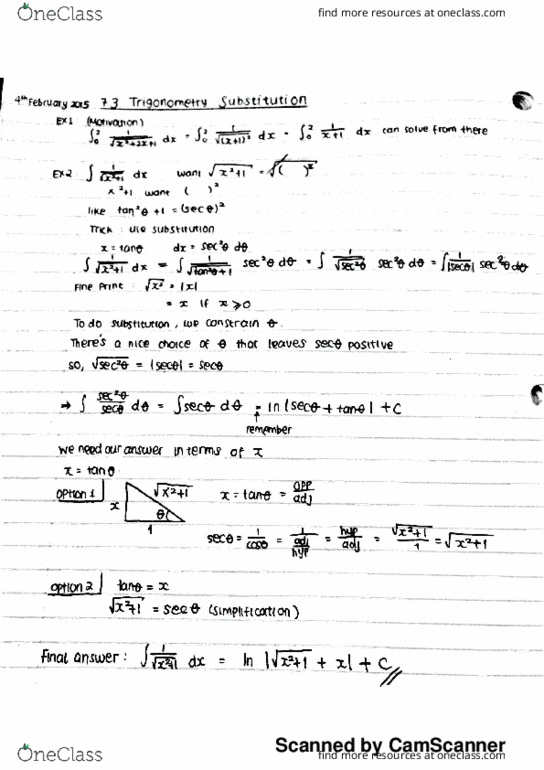 OneClass
find more resources at oneclass.com
4th February 2015 7.3 Trigonometry Substitution
EX 1 (Motivation)
∫₀² 1/√(x²+2x+1) dx = ∫₀² 1/√(x+1)² dx = ∫₀² 1/(x+1) dx can solve from there
EX 2 ∫ 1/√(x²+1) dx want √(x²+1) = √( )²
x²+1 want ( )²
like tan²θ + 1 = (secθ)²
Trick : use substitution
x = tanθ dx = sec²θ dθ
∫ 1/√(x²+1) dx = ∫ 1/√(tan²θ+1) sec²θ dθ = ∫ 1/√(sec²θ) sec²θ dθ = ∫ 1/|secθ| sec²θ dθ
Fine Print : √x² = |x|
= x if x ⩾ 0
To do substitution, we constrain θ.
There's a nice choice of θ that leaves secθ positive
so, √(sec²θ) = |secθ| = secθ
→ ∫ sec²θ/secθ dθ = ∫ secθ dθ = ln |secθ + tanθ| + C
↑
remember
We need our answer in terms of x
x = tanθ
Option 1 x √(x²+1) θ 1 x = tanθ = opp/adj
secθ = 1/cosθ = 1/(adj/hyp) = hyp/adj = √(x²+1)/1 = √(x²+1)
Option 2 tanθ = x
√(x²+1) = secθ (simplification)
Final answer : ∫ 1/√(x²+1) dx = ln |√(x²+1) + x| + C
Scanned by CamScanner
OneClass
find more resources at oneclass.com